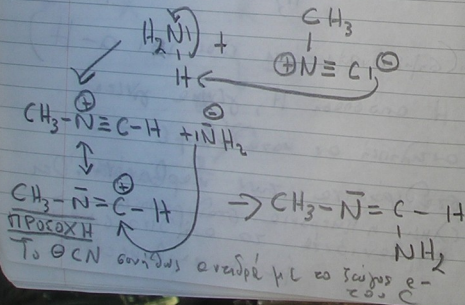 CH₃
H₂N̄ +
⊕N≡C|⊖
H
⊕ ⊖
CH₃-N≡C-H +|N̄H₂
⊕
CH₃-N̄=C-H → CH₃-N̄=C-H
ΠΡΟΣΟΧΗ
NH₂
Το ⊖CN συνήθως αντιδρά με το ζεύγος e⁻
του C